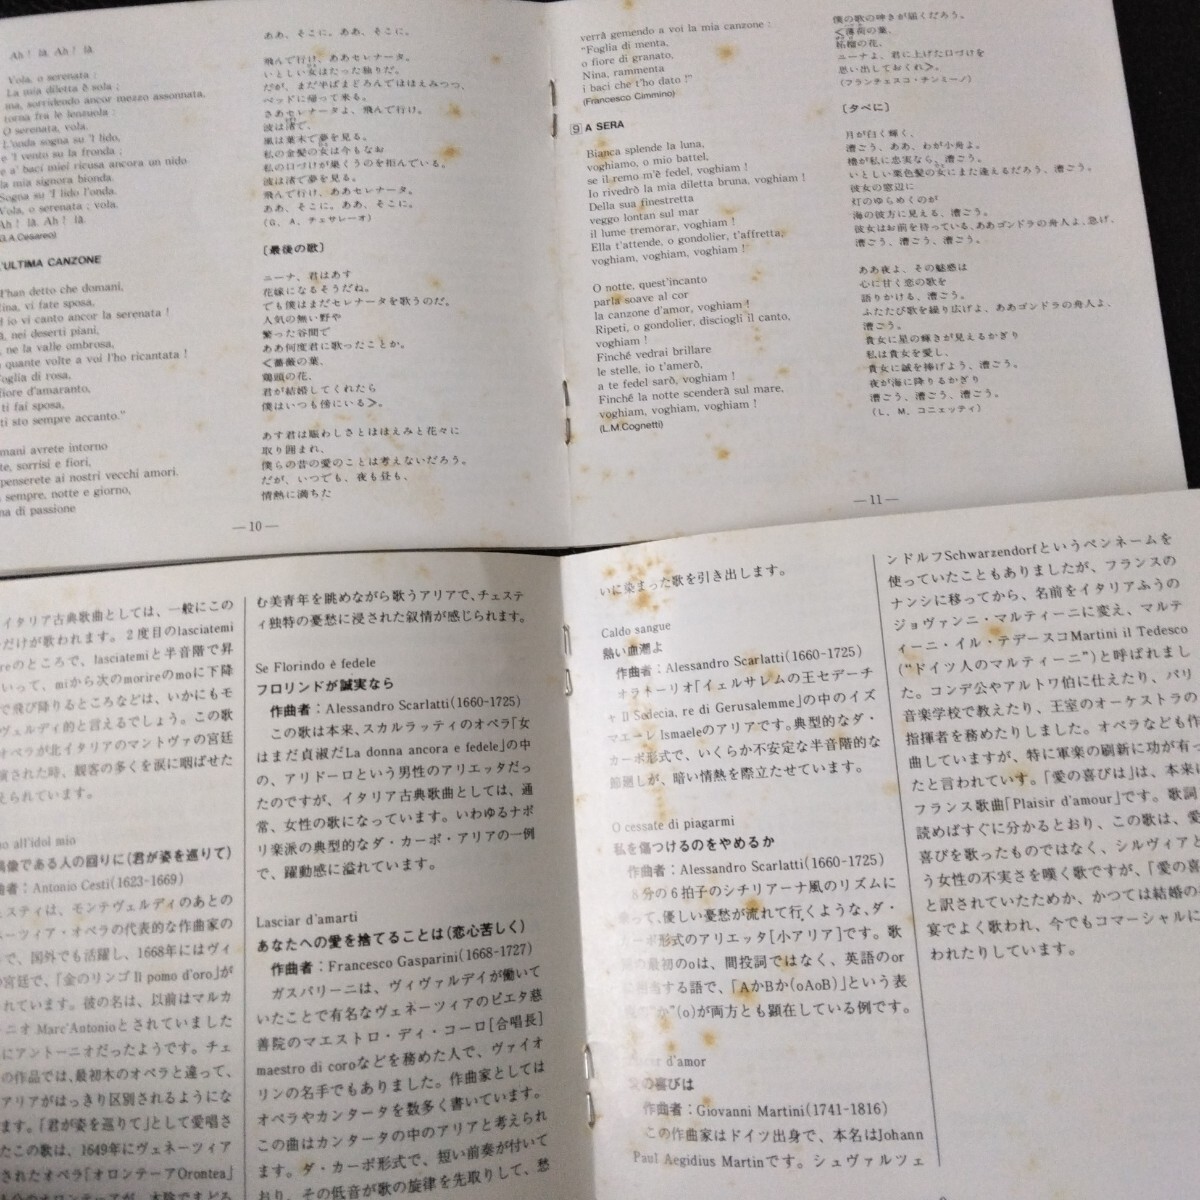 Ah! là. Ah! là.
Vola, o serenata:
La mia diletta ò sola;
ma, sorridendo ancor mezzo assonnata,
torna fra le lenzuola:
O serenata, vola.
L'onda sogna su 'l lido,
e 'l vento su la fronda;
e a' baci miei ricusa ancora un nido
la mia signora bionda.
Sogna su 'l lido l'onda.
Vola, o serenata; vola.
Ah! là. Ah! là.
G.A.Cesareo)
L'ULTIMA CANZONE
han detto che domani,
vi fate sposa,
io vi canto ancor la serenata!
nei deserti piani,
ne la valle ombrosa,
quante volte a voi l'ho ricantata!
oglia di rosa,
fiore d'amaranto,
ti fai sposa,
ti sto sempre accanto."
mani avrete intorno
te, sorrisi e fiori,
penserete ai nostri vecchi amori.
sempre, notte e giorno,
na di passione
ああ、そこに。ああ、そこに。
飛んで行け、ああセレナータ。
いとしい女はたった独りだ。
だが、まだ半ばまどろんでほほえみつつ、
ベッドに帰って来る。
さあセレナータよ、飛んで行け。
波は渚で、
風は葉末で夢を見る。
私の金髪の女は今もなお
私の口づけが巣くうのを拒んでいる。
波は渚で夢を見る。
飛んで行け、ああセレナータ。
ああ、そこに。ああ、そこに。
(G．A．チェザレーオ)
〔最後の歌〕
ニーナ、君はあす
花嫁になるそうだね。
でも僕はまだセレナータを歌うのだ。
人気の無い野や
繁った谷間で
ああ何度君に歌ったことか。
＜薔薇の葉、
鶏頭の花、
君が結婚してくれたら
僕はいつも傍にいる＞。
あす君は賑わしさとほほえみと花々に
取り囲まれ、
僕らの昔の愛のことは考えないだろう。
だが、いつでも、夜も昼も、
情熱に満ちた
— 10 —
verrà gemendo a voi la mia canzone:
"Foglia di menta,
o fiore di granato,
Nina, rammenta
i baci che t'ho dato!"
(Francesco Cimmino)
9 A SERA
Bianca splende la luna,
voghiamo, o mio battel,
se il remo m'è fedel, voghiam!
Io rivedrò la mia diletta bruna, voghiam!
Della sua finestretta
veggo lontan sul mar
il lume tremorar, voghiam!
Ella t'attende, o gondolier, t'affretta,
voghiam, voghiam, voghiam!
O notte, quest'incanto
parla soave al cor
la canzone d'amor, voghiam!
Ripeti, o gondolier, disciogli il canto,
voghiam!
Finchê vedrai brillare
le stelle, io t'amerò,
a te fedel sarò, voghiam!
Finchê la notte scenderà sul mare,
voghiam, voghiam, voghiam!
(L.M.Cognetti)
僕の歌の呻きが届くだろう。
＜薄荷の葉、
柘榴の花、
ニーナよ、君に上げた口づけを
思い出しておくれ＞。
(フランチェスコ・チンミーノ)
〔夕べに〕
月が白く輝く、
漕ごう、ああ、わが小舟よ。
櫓が私に忠実なら、漕ごう。
いとしい栗色髪の女にまた逢えるだろう、漕ごう。
彼女の窓辺に
灯のゆらめくのが
海の彼方に見える、漕ごう。
彼女はお前を待っている、ああゴンドラの舟人よ、急げ、
漕ごう、漕ごう、漕ごう。
ああ夜よ、その魅惑は
心に甘く恋の歌を
語りかける、漕ごう。
ふたたび歌を繰り広げよ、ああゴンドラの舟人よ、
漕ごう。
貴女に星の輝きが見えるかぎり
私は貴女を愛し、
貴女に誠を捧げよう、漕ごう。
夜が海に降りるかぎり
漕ごう、漕ごう、漕ごう。
(L．M．コニェッティ)
— 11 —
イタリア古典歌曲としては、一般にこの
だけが歌われます。２度目のlasciatemi
reのところで、lasciatemiと半音階で昇
いって、miから次のmorireのmoに下降
で飛び降りるところなどは、いかにもモ
ヴェルディ的と言えるでしょう。この歌
オペラが北イタリアのマントヴァの宮廷
演された時、観客の多くを涙に咽ばせた
えられています。
no all'idol mio
偶像である人の回りに(君が姿を巡りて)
曲者：Antonio Cesti(1623-1669)
ェスティは、モンテヴェルディのあとの
ネーツィア・オペラの代表的な作曲家の
で、国外でも活躍し、1668年にはヴィ
の宮廷で、「金のリンゴ Il pomo d'oro」が
れています。彼の名は、以前はマルカ
ニオ Marc'Antonioとされていました
にアントーニオだったようです。チェ
の作品では、最初木のオペラと違って、
アリアがはっきり区別されるようにな
ます。「君が姿を巡りて」として愛唱さ
たこの歌は、1649年にヴェネーツィア
されたオペラ「オロンテーアOrontea」
む美青年を眺めながら歌うアリアで、チェステ
ィ独特の憂愁に浸された叙情が感じられます。
Se Florindo è fedele
フロリンドが誠実なら
作曲者：Alessandro Scarlatti(1660-1725)
この歌は本来、スカルラッティのオペラ「女
はまだ貞淑だLa donna ancora e fedele」の中
の、アリドーロという男性のアリエッタだっ
たのですが、イタリア古典歌曲としては、通
常、女性の歌になっています。いわゆるナポ
リ楽派の典型的なダ・カーポ・アリアの一例
で、躍動感に溢れています。
Lasciar d'amarti
あなたへの愛を捨てることは(恋心苦しく)
作曲者：Francesco Gasparini(1668-1727)
ガスパリーニは、ヴィヴァルディが働いて
いたことで有名なヴェネーツィアのピエタ慈
善院のマエストロ・ディ・コーロ[合唱長]
maestro di coroなどを務めた人で、ヴァイオ
リンの名手でもありました。作曲家としては
オペラやカンタータを数多く書いています。
この曲はカンタータの中のアリアと考えられ
ます。ダ・カーポ形式で、短い前奏が付いて
おり、その低音が歌の旋律を先取りして、愁
いに染まった歌を引き出します。
Caldo sangue
熱い血潮よ
作曲者：Alessandro Scarlatti(1660-1725)
オラトーリオ「イェルサレムの王セデーチ
ャ Il Sedecia, re di Gerusalemme」の中のイズ
マエーレ Ismaeleのアリアです。典型的なダ・
カーポ形式で、いくらか不安定な半音階的な
節廻しが、暗い情熱を際立たせています。
O cessate di piagarmi
私を傷つけるのをやめるか
作曲者：Alessandro Scarlatti(1660-1725)
８分の６拍子のシチリアーナ風のリズムに
って、優しい憂愁が流れて行くような、ダ・
カーポ形式のアリエッタ[小アリア]です。歌
の最初のoは、間投詞ではなく、英語のor
する語で、「AかBか(oAoB)」という表
"か"(o)が両方とも顕在している例です。
d'amor
の喜びは
作曲者：Giovanni Martini(1741-1816)
この作曲家はドイツ出身で、本名はJohann
Paul Aegidius Martinです。シュヴァルツェ
ンドルフSchwarzendorfというペンネームを
使っていたこともありましたが、フランスの
ナンシに移ってから、名前をイタリアふうの
ジョヴァンニ・マルティーニに変え、マルテ
ィーニ・イル・テデースコMartini il Tedesco
("ドイツ人のマルティーニ")と呼ばれまし
た。コンデ公やアルトワ伯に仕えたり、パリ
音楽学校で教えたり、王室のオーケストラの
指揮者を務めたりしました。オペラなども作
曲していますが、特に軍楽の刷新に功が有っ
たと言われています。「愛の喜びは」は、本来は
フランス歌曲「Plaisir d'amour」です。歌詞
読めばすぐに分かるとおり、この歌は、愛
喜びを歌ったものではなく、シルヴィアと
う女性の不実さを嘆く歌ですが、「愛の喜
と訳されていたためか、かつては結婚の
宴でよく歌われ、今でもコマーシャルに
われたりしています。